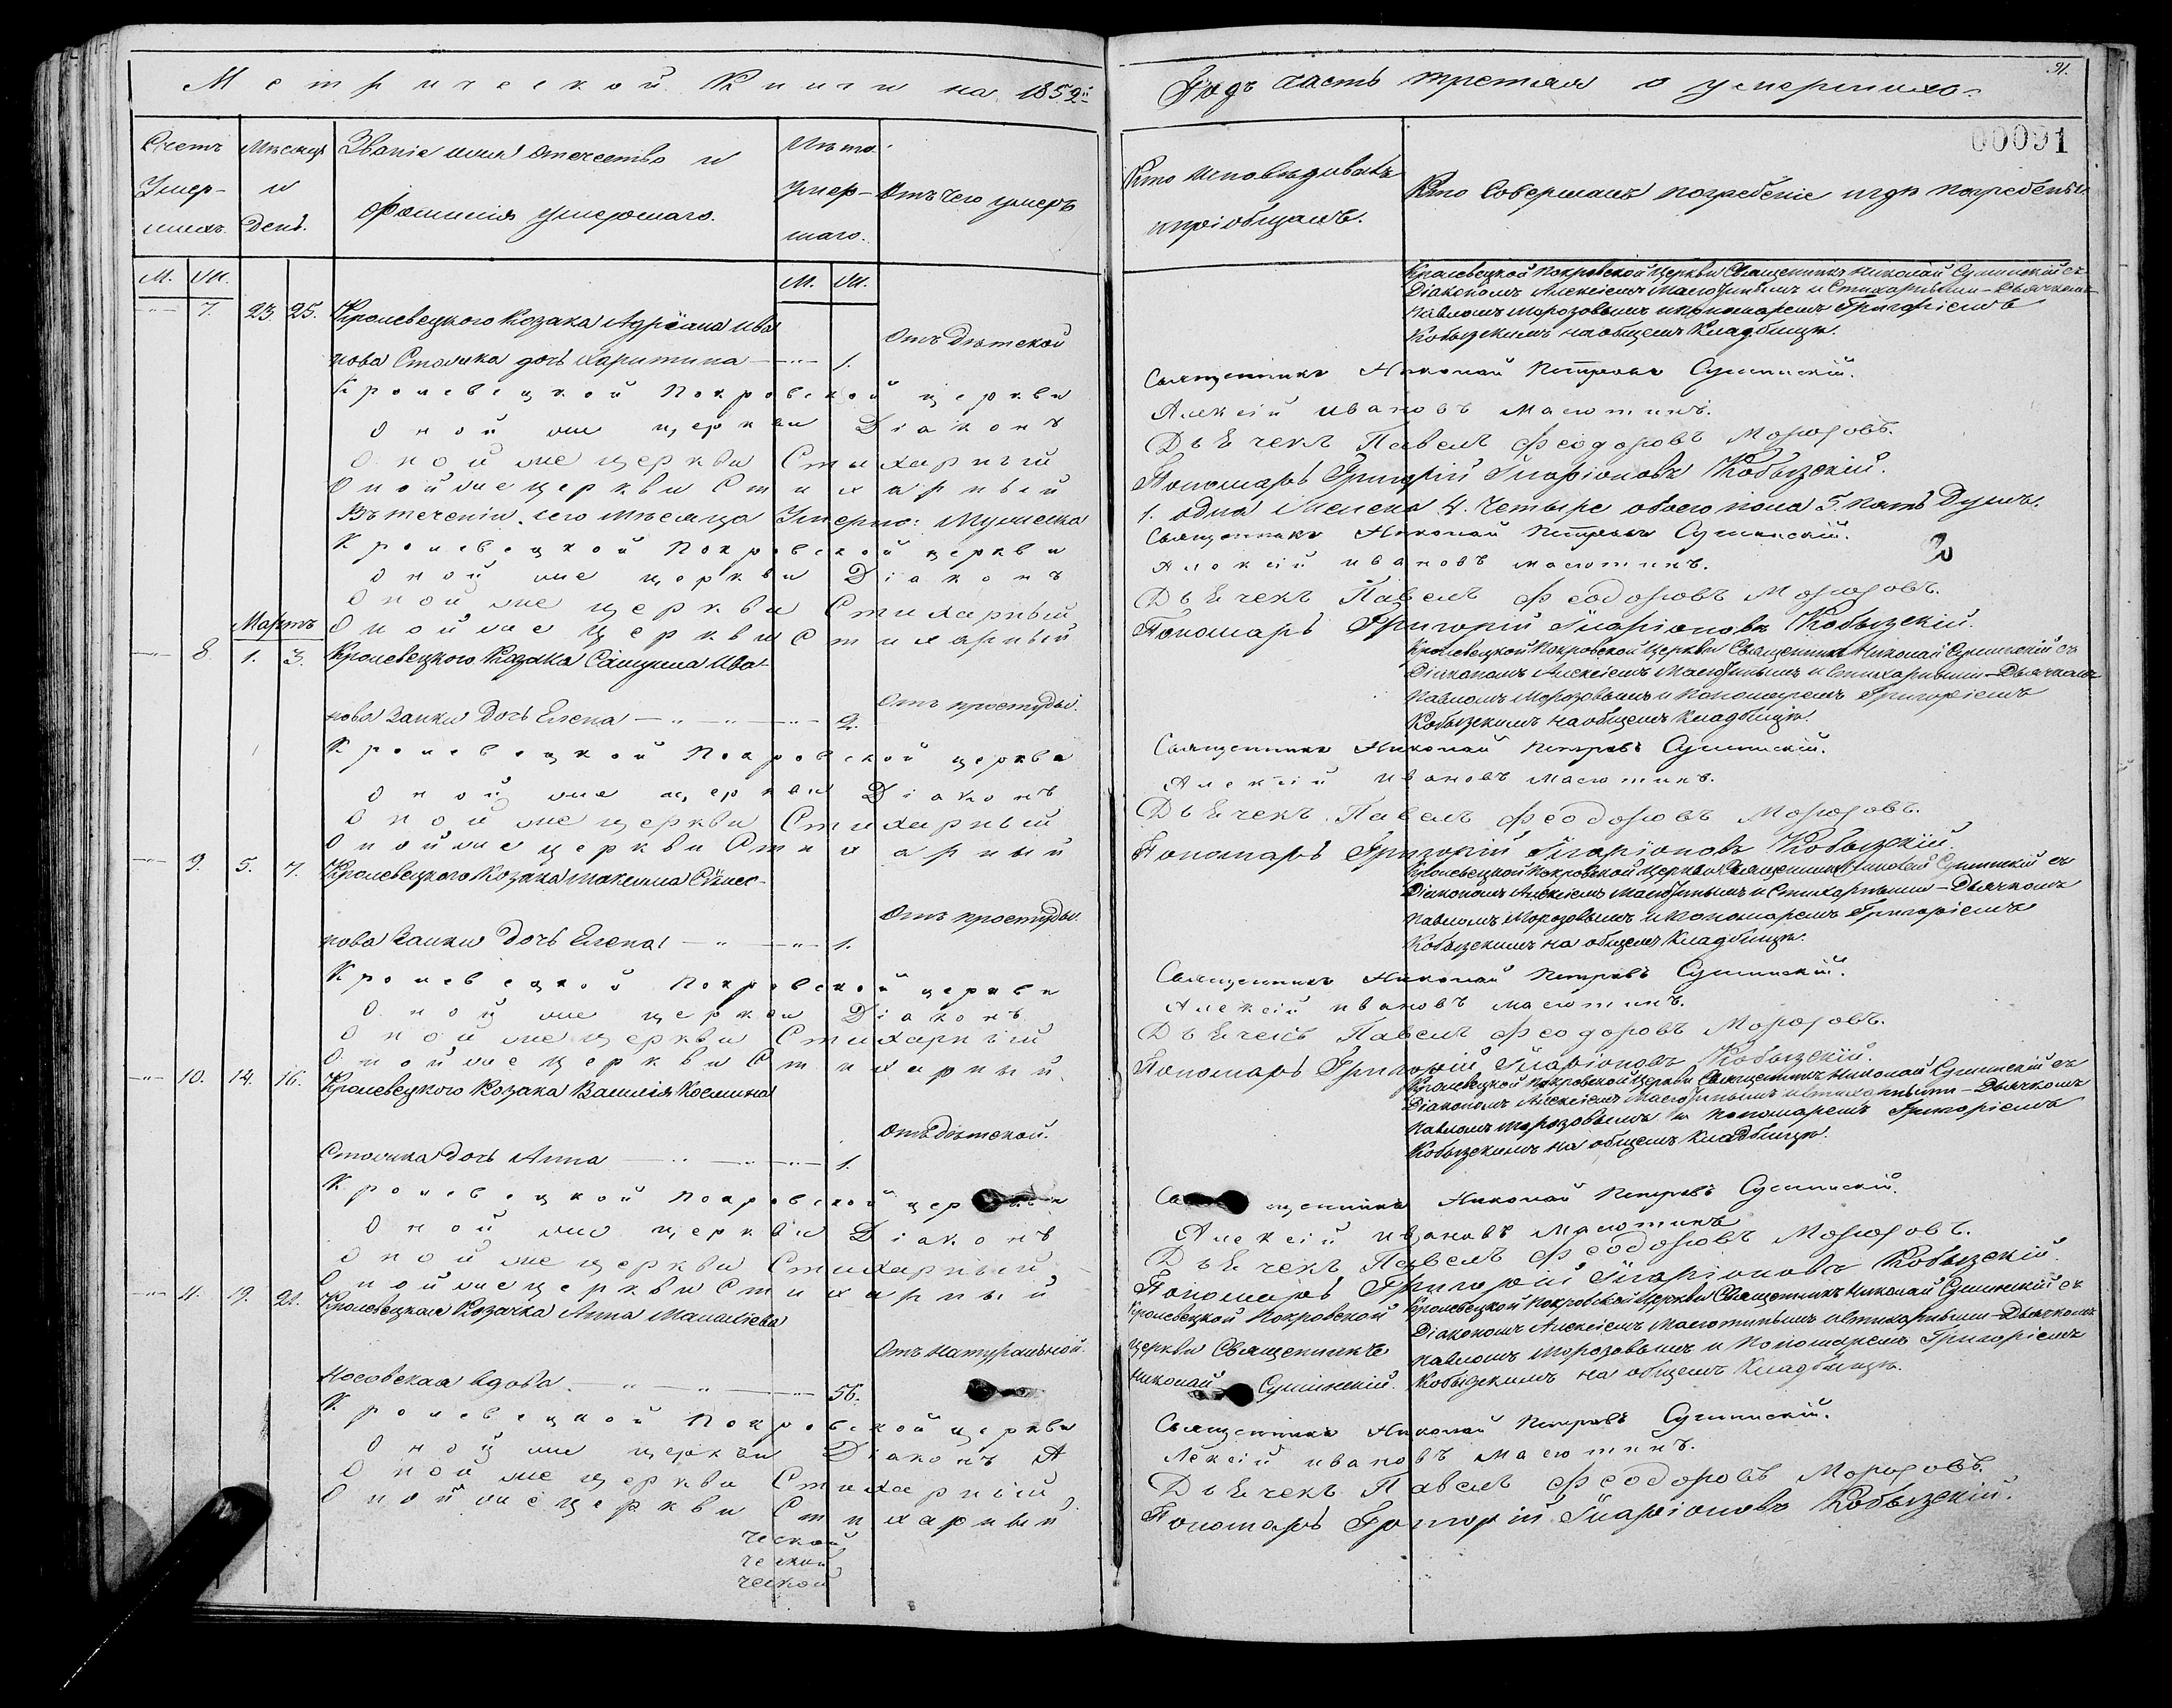 Метрической Книги на 1852й
Годъ часть третья о умершихъ
91.
00091
Счетъ Умер-шихъ.
Мѣсяцъ и День.
Званіе имя отчество и фамилія умершаго.
Лѣта умер-шаго.
Отъ чего умеръ
Кто исповѣдывалъ и пріобщалъ.
Кто совершалъ погребеніе и гдѣ погребены
М. Ж.
М. Ж.
7. 23. 25. Кролевецкого Козака Адріана Ива
нова Столика дочь Харитина 1.
Отъ дѣтской
Кролевецкой Покровской Церкви Священникъ Николай Сушинскій съ
Діакономъ Алексіемъ Масютинымъ и Стихарными - Дьячкомъ
Павломъ Морозовымъ и пономаремъ Григоріемъ
Кобызскимъ на общемъ Кладбищѣ.
Кролевецкой Покровской церкви Священникъ Николай Петровъ Сушинскій.
Оной же церкви Діаконъ Алексій Ивановъ Масютинъ.
Оной же церкви Стихарный Дьячекъ Павелъ Феодоровъ Морозовъ.
Оной же церкви Стихарный Пономарь Григорій Иларіоновъ Кобызскій.
Въ теченіи сего мѣсяца Умерло: Мужеска 1. одна Женска 4. Четыре обоего пола 5. пять Душъ.
Кролевецкой Покровской церкви Священникъ Николай Петровъ Сушинскій.
Оной же церкви Діаконъ Алексій Ивановъ Масютинъ.
Оной же церкви Стихарный Дьячекъ Павелъ Феодоровъ Морозовъ.
Оной же Церкви Стихарный Пономарь Григорій Иларіоновъ Кобызскій.
Мартъ
8. 1. 3. Кролевецкого Козака Самуила Ива-
нова Заики Дочь Елена 2.
Отъ простуды.
Кролевецкой Покровской Церкви Священникъ Николай Сушинскій съ
Діакономъ Алексіемъ Масютинымъ и Стихарными - Дьячкомъ
Павломъ Морозовымъ и Пономаремъ Григоріемъ
Кобызскимъ на общемъ Кладбищѣ.
Кролевецкой Покровской церкви Священникъ Николай Петровъ Сушинскій.
Оной же церкви Діаконъ Алексій Ивановъ Масютинъ.
Оной же церкви Стихарный Дьячекъ Павелъ Феодоровъ Морозовъ.
Оной же церкви Стихарный Пономарь Григорій Иларіоновъ Кобызскій.
9. 5. 7. Кролевецкого Козака Максима
нова Заики Дочь Елена 1.
Отъ простуды
Кролевецкой Покровской Церкви Священникъ Николай Сушинскій съ
Діакономъ Алексіемъ Масютинымъ и Стихарными - Дьячкомъ
Павломъ Морозовымъ и Пономаремъ Григоріемъ
Кобызскимъ на общемъ Кладбищѣ.
Кролевецкой Покровской церкви Священникъ Николай Петровъ Сушинскій.
Оной же церкви Діаконъ Алексій Ивановъ Масютинъ.
Оной же церкви Стихарный Дьячекъ Павелъ Феодоровъ Морозовъ.
Оной же церкви Стихарный Пономарь Григорій Иларіоновъ Кобызскій.
10. 14. 16. Кролевецкого Козака Василія Космина
Столика Дочь Анна 1.
Отъ дѣтской.
Кролевецкой Покровской Церкви Священникъ Николай Сушинскій съ
Діакономъ Алексіемъ Масютинымъ и Стихарными - Дьячкомъ
Павломъ Морозовымъ и пономаремъ Григоріемъ
Кобызскимъ на общемъ Кладбищѣ.
Кролевецкой Покровской церкви Священникъ Николай Петровъ Сушинскій.
Оной же церкви Діаконъ Алексій Ивановъ Масютинъ
Оной же церкви Стихарный Дьячекъ Павелъ Феодоровъ Морозовъ.
Оной же церкви Стихарный Пономарь Григорій Иларіоновъ Кобызскій.
11. 19. 21. Кролевецкая Козачка Анна
Носовская вдова 56.
Отъ натуральной.
Кролевецкой Покровской
Церкви Священникъ
Николай Сушинскій.
Кролевецкой Покровской Церкви Священникъ Николай Сушинскій съ
Діакономъ Алексіемъ Масютинымъ и Стихарными - Дьячкомъ
Павломъ Морозовымъ и Пономаремъ Григоріемъ
Кобызскимъ на общемъ Кладбищѣ.
Кролевецкой Покровской церкви Священникъ Николай Петровъ Сушинскій.
Оной же церкви Діаконъ Алексій Ивановъ Масютинъ.
Оной же церкви Стихарный Дьячекъ Павелъ Феодоровъ Морозовъ.
Оной же церкви Стихарный Пономарь Григорій Иларіоновъ Кобызскій.
ческой
ческой
ческой